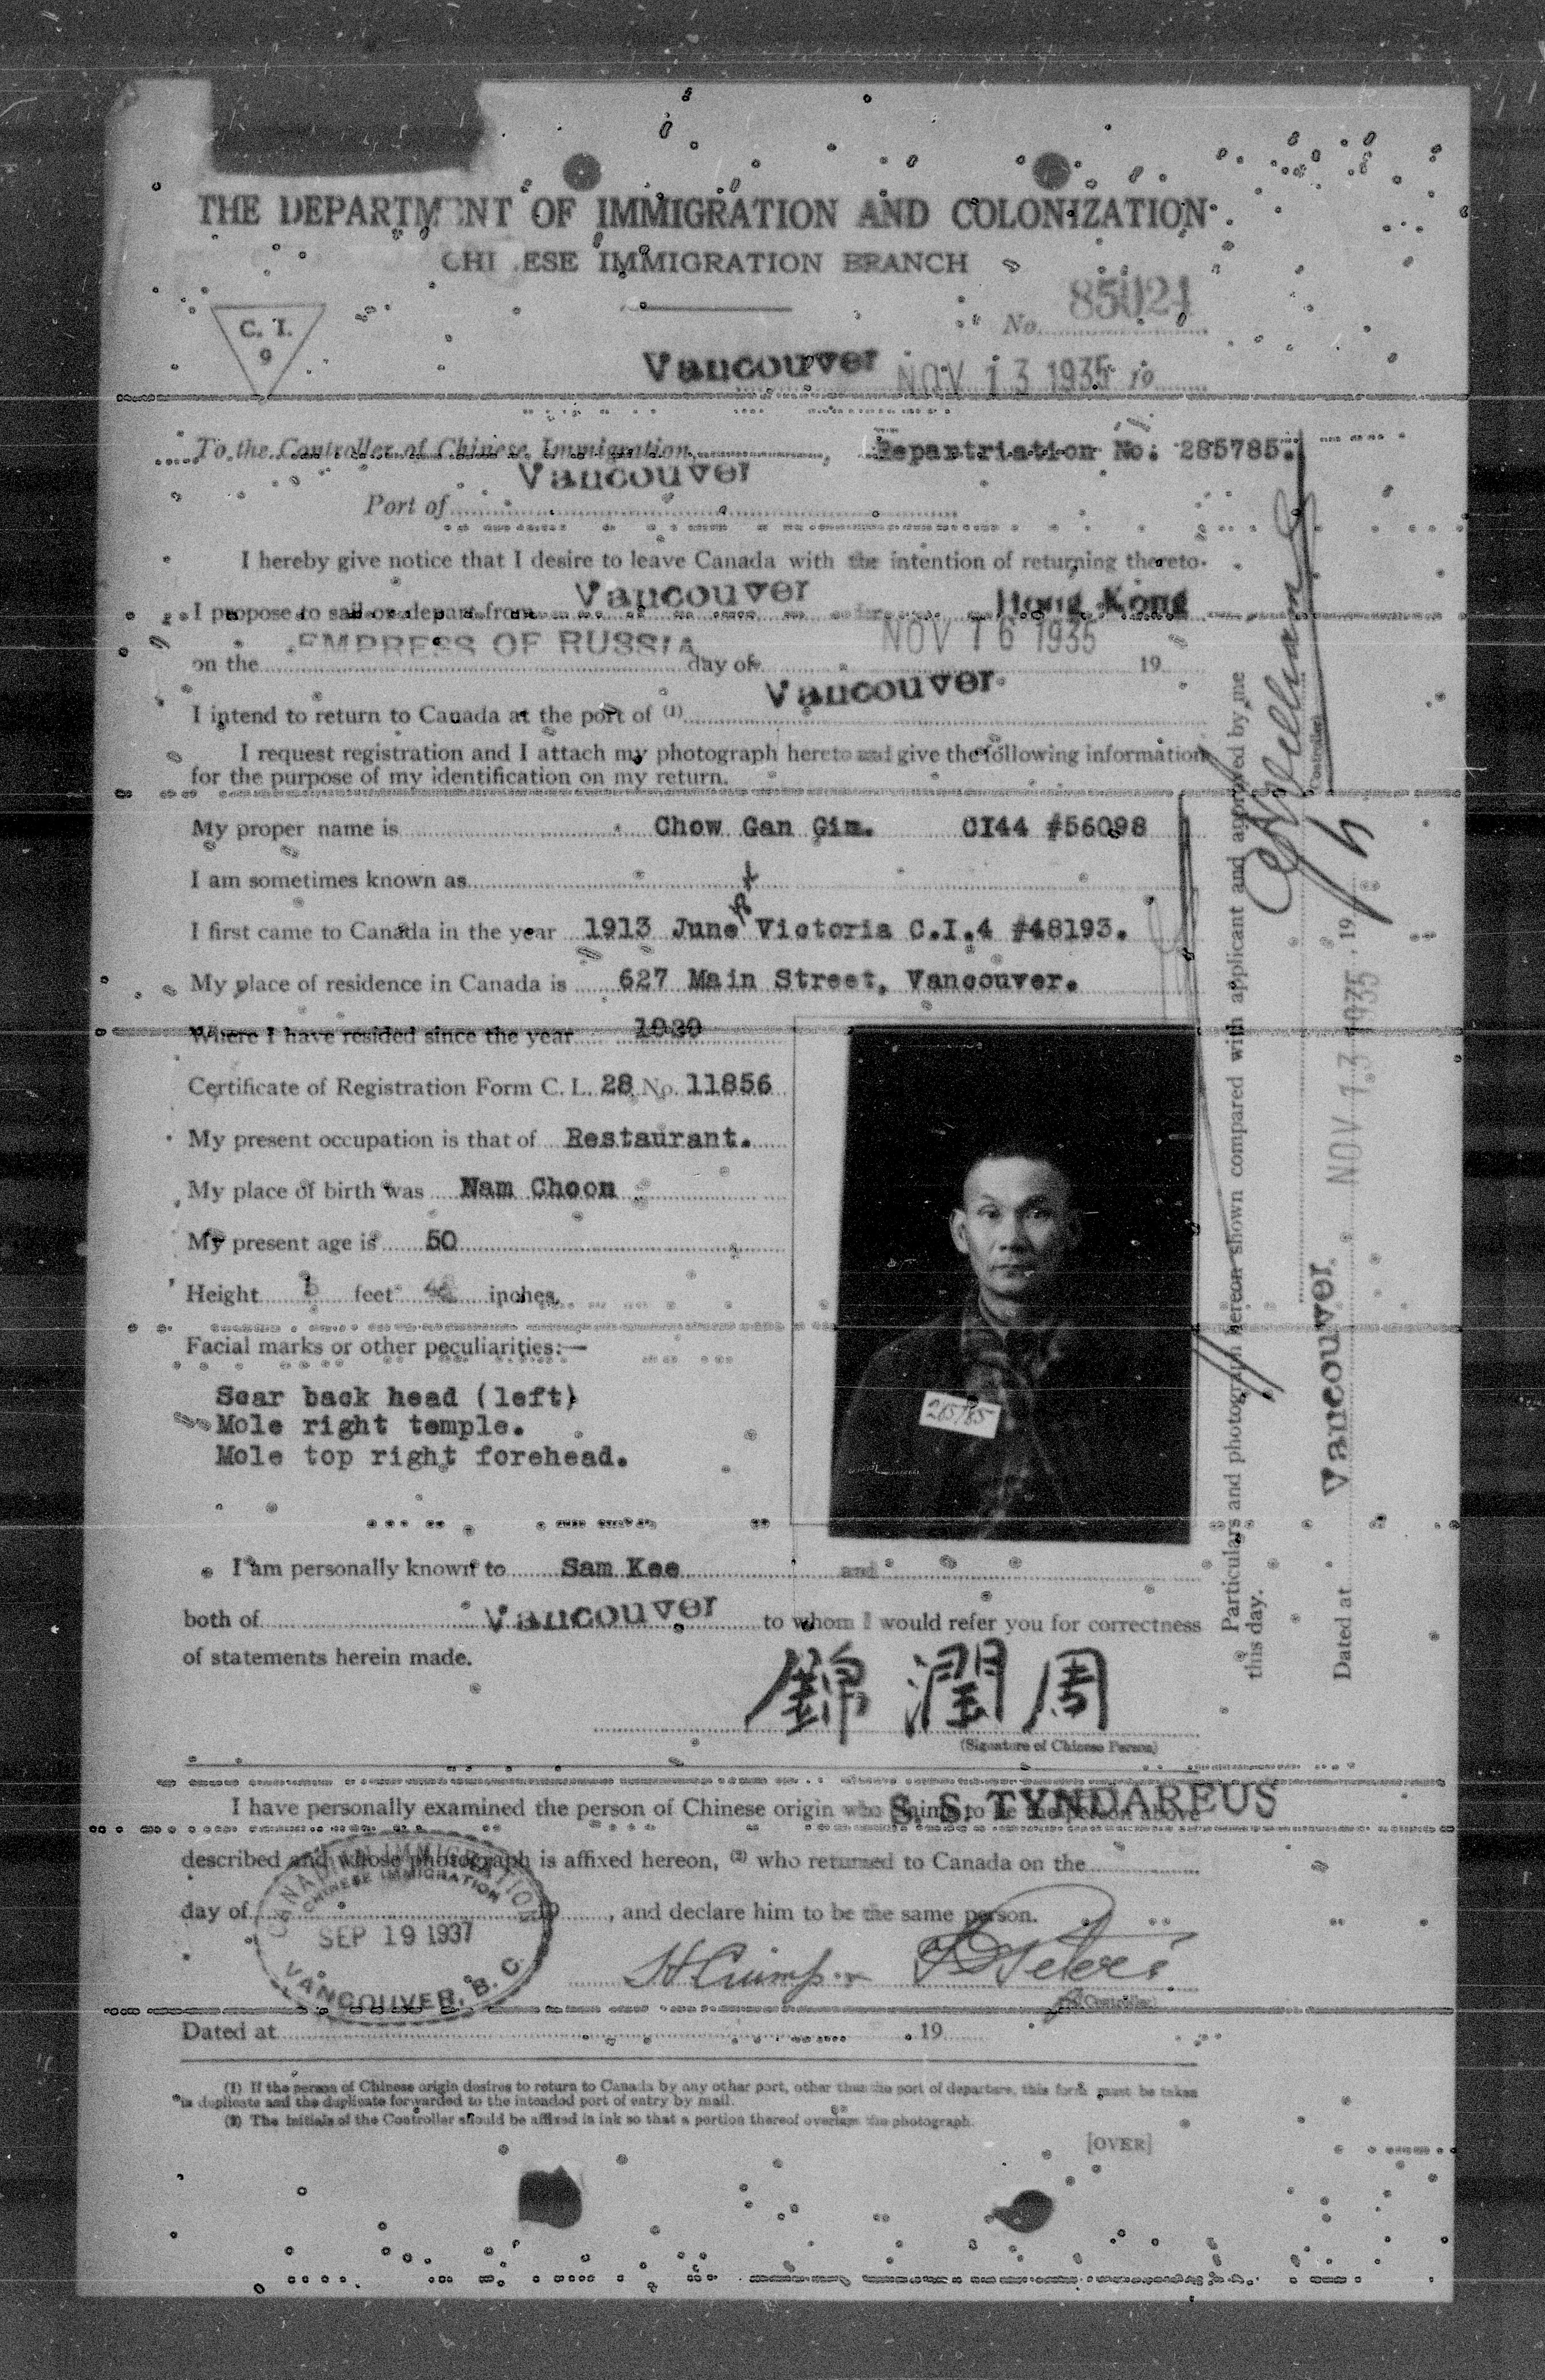 THE DEPARTMENT OF IMMIGRATION AND COLONIZATION
CHINESE IMMIGRATION BRANCH
C. I.
9
No. 85024
Vancouver NOV 13 1935 19
To the Controller of Chinese Immigration, Repartriation No: 285785.
Vancouver
Port of
I hereby give notice that I desire to leave Canada with the intention of returning thereto.
I propose to sail or depart from Vancouver for Hong Kong
on the EMPRESS OF RUSSIA day of NOV 16 1935 19
I intend to return to Canada at the port of (1) Vancouver.
I request registration and I attach my photograph hereto and give the following information
for the purpose of my identification on my return.
My proper name is Chow Gan Gim. CI44 #56098
I am sometimes known as
I first came to Canada in the year 1913 June Victoria C.I.4 #48193.
My place of residence in Canada is 627 Main Street, Vancouver.
Where I have resided since the year 1920
Certificate of Registration Form C. I. 28 No. 11856
My present occupation is that of Restaurant.
My place of birth was Nam Choon
My present age is 50
Height 5 feet inches.
Facial marks or other peculiarities:—
Scar back head (left)
Mole right temple.
Mole top right forehead.
285785
I am personally known to Sam Kee and
both of Vancouver to whom I would refer you for correctness
of statements herein made.
錦潤周
(Signature of Chinese Person)
S. S. TYNDAREUS
I have personally examined the person of Chinese origin who claims to be the person above
described and whose photograph is affixed hereon, (2) who returned to Canada on the
day of 19 , and declare him to be the same person.
CANADIAN IMMIGRATION
CHINESE IMMIGRATION
SEP 19 1937
VANCOUVER, B. C.
Controller
Dated at 19
(1) If the person of Chinese origin desires to return to Canada by any other port, other than the port of departure, this form must be taken
in duplicate and the duplicate forwarded to the intended port of entry by mail.
(2) The initials of the Controller should be affixed in ink so that a portion thereof overlaps the photograph.
[OVER]
Particulars and photograph hereon shown compared with applicant and approved by me
this day.
(Controller)
Dated at Vancouver NOV 13 1935 19